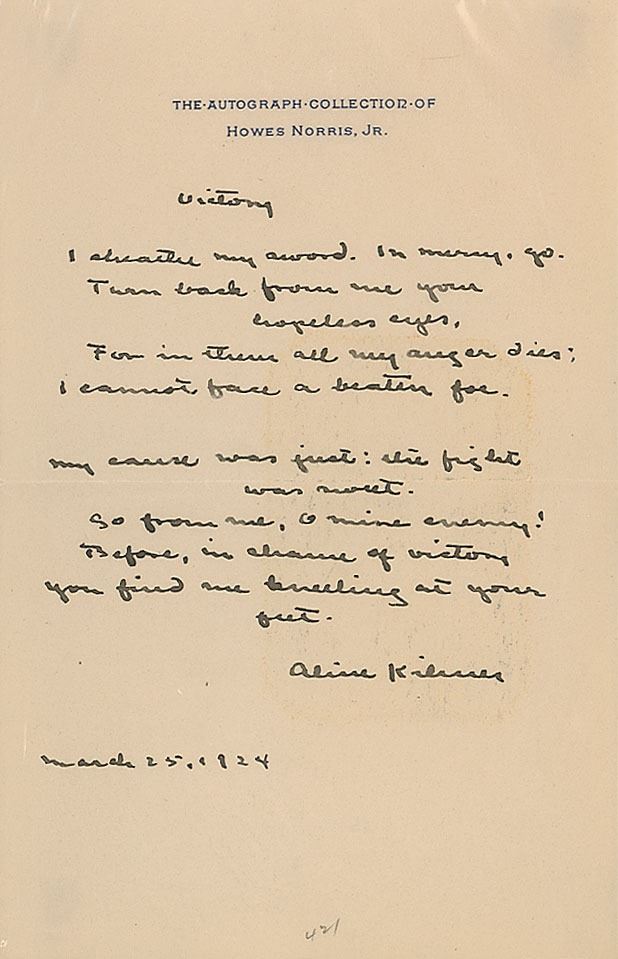 THE·AUTOGRAPH·COLLECTION·OF
HOWES NORRIS, JR.
Victory
I sheathe my sword. In mercy, go.
Turn back from me your
hopeless eyes,
For in them all my anger dies;
I cannot face a beaten foe.
My cause was just: the fight
was sweet.
Go from me, O mine enemy!
Before, in shame of victory
You find me kneeling at your
feet.
Aline Kilmer
March 25, 1924
421